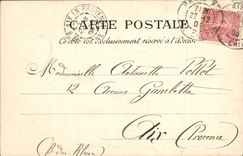 CARTE POSTALE
Ce côté est exclusivement réservé à l'adresse
Mademoiselle Antoinette
12 Avenue Gambetta
Aix (Provence)
(B. du Rhône)